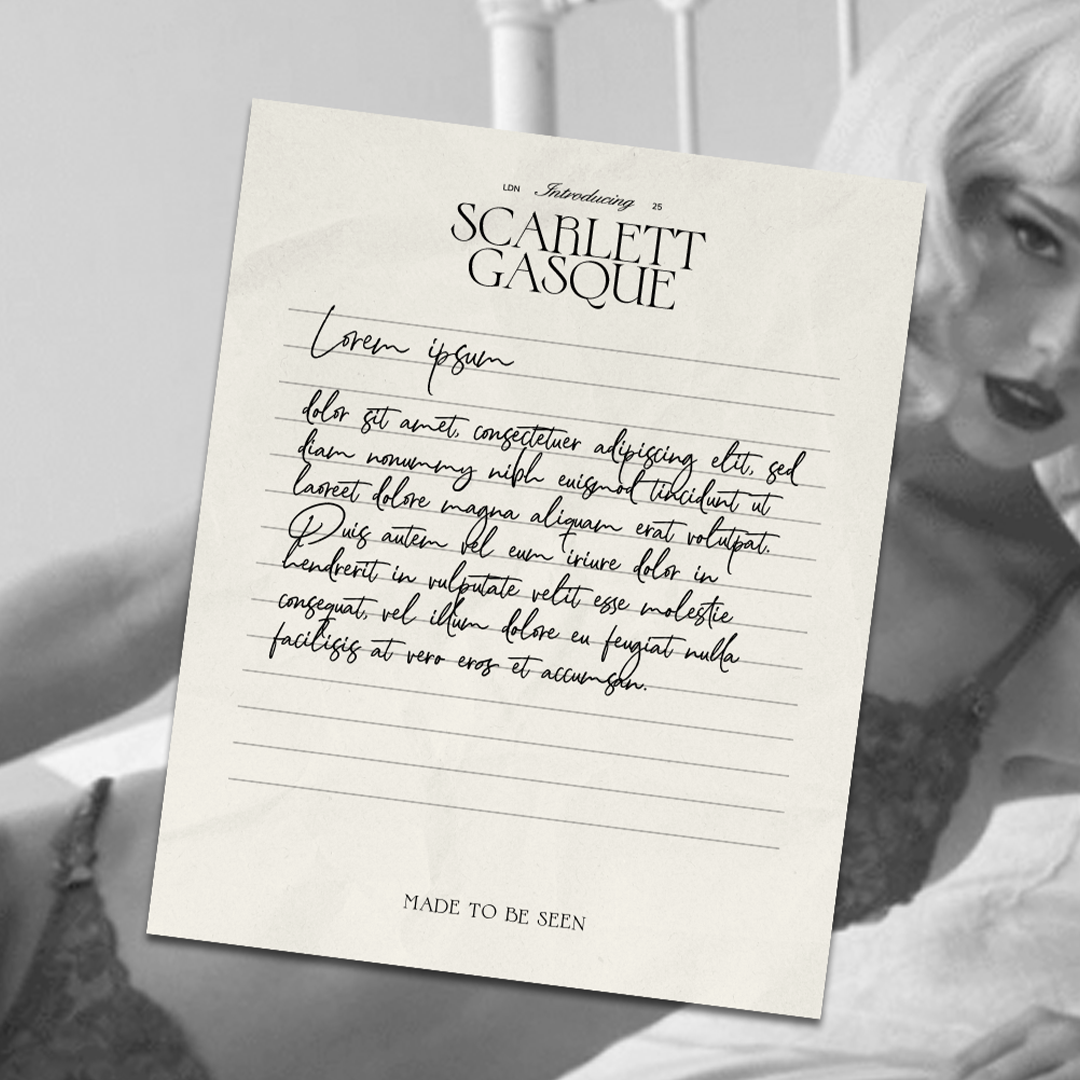 LDN Introducing 25
SCARLETT
GASQUE
Lorem ipsum
dolor sit amet, consectetuer adipiscing elit, sed
diam nonummy nibh euismod tincidunt ut
laoreet dolore magna aliquam erat volutpat.
Duis autem vel eum iriure dolor in
hendrerit in vulputate velit esse molestie
consequat, vel illum dolore eu feugiat nulla
facilisis at vero eros et accumsan.
MADE TO BE SEEN